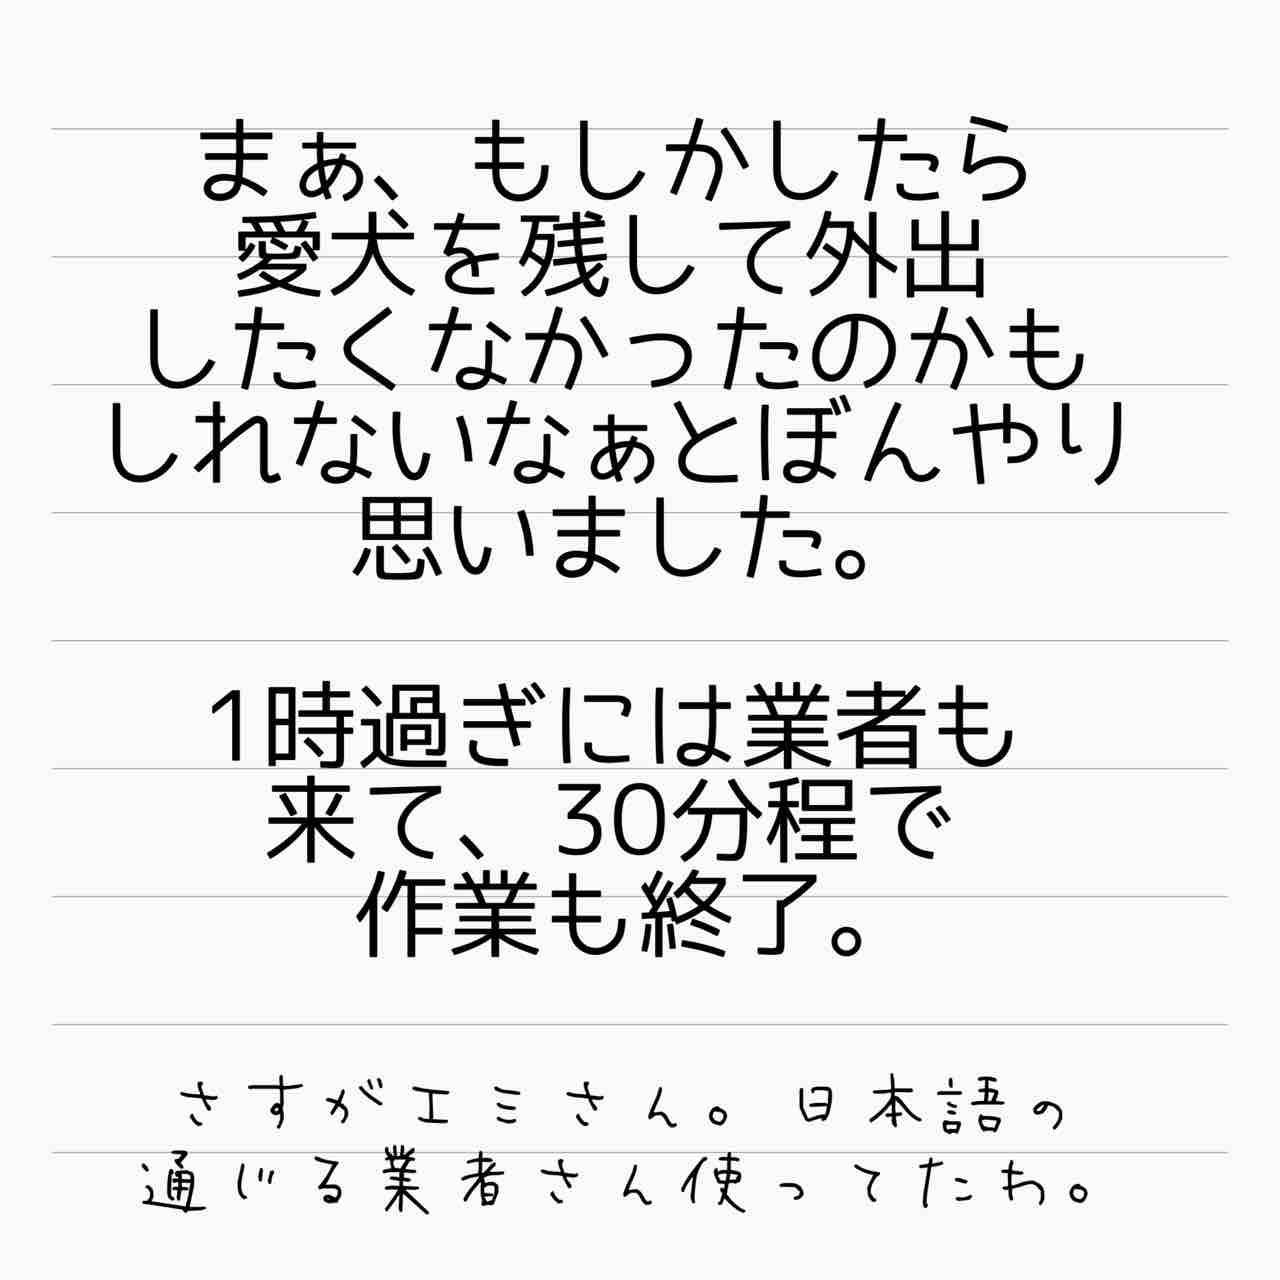 まぁ、もしかしたら
愛犬を残して外出
したくなかったのかも
しれないなぁとぼんやり
思いました。
1時過ぎには業者も
来て、30分程で
作業も終了。
さすがエミさん。日本語の
通じる業者さん使ってたわ。